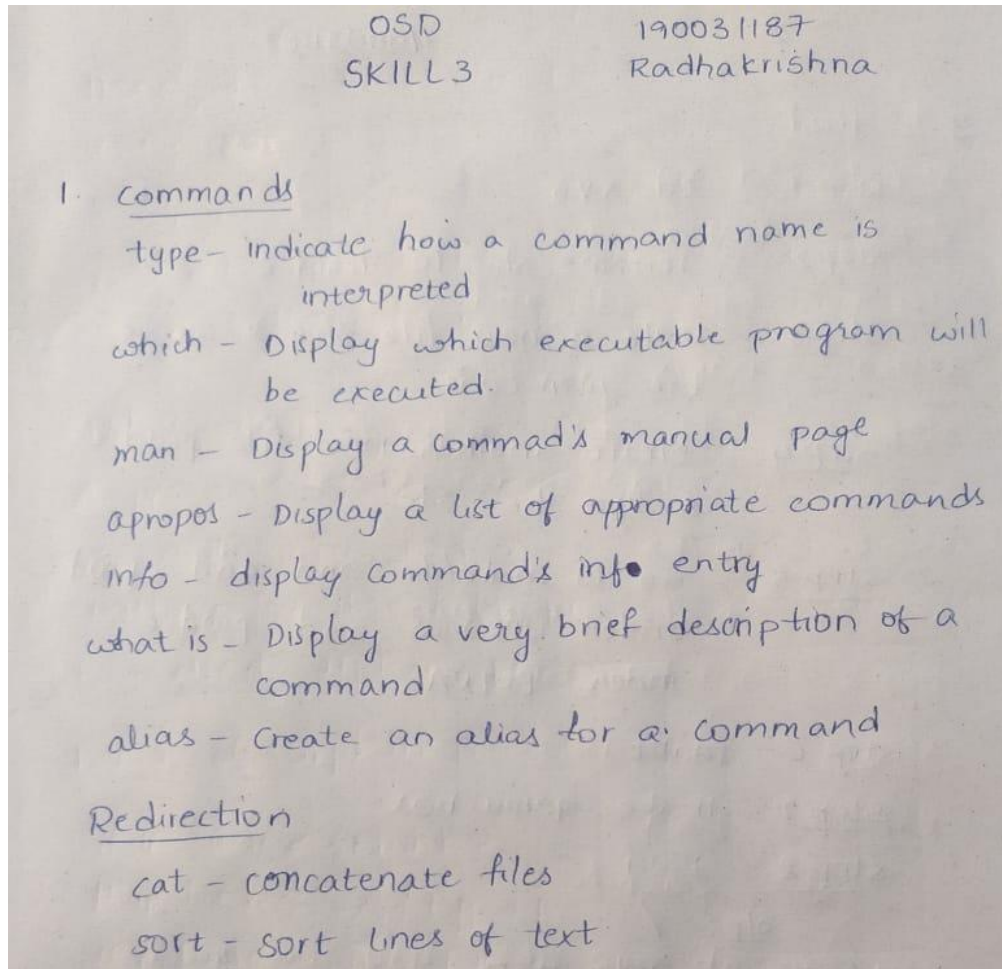 OSD 190031187
SKILL3 Radhakrishna
1. commands
type - indicate how a command name is
interpreted
which - Display which executable program will
be executed.
man - Display a commad's manual page
apropos - Display a list of appropriate commands
info - display command's info entry
what is - Display a very brief description of a
command
alias - Create an alias for a command
Redirection
cat - concatenate files
sort - sort lines of text